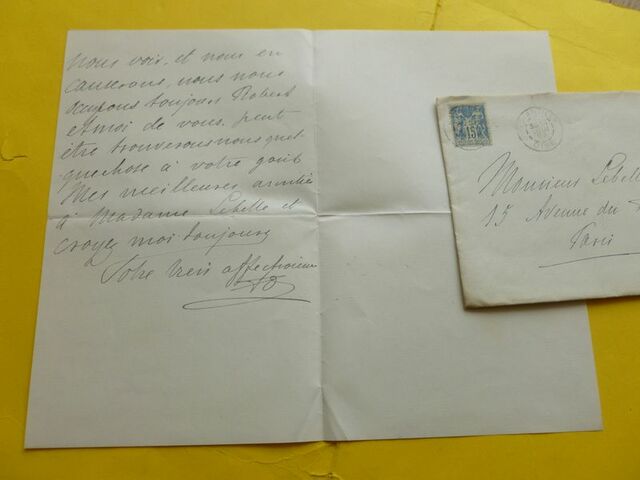 nous voir, et nous en
causerons, nous nous
occupons toujours Robert
et moi de vous. peut
être trouverons nous quel
que chose à votre goût
Mes meilleures amitiés
à Madame Lebelle et
croyez moi toujours
Votre bien affectionné
15
Monsieur Lebelle
15 Avenue du
Paris